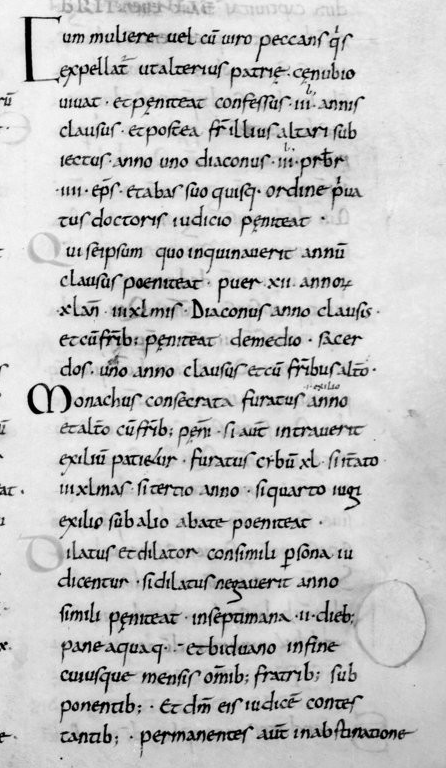 Cum muliere uel cū uiro peccans q̇s
expellat̄ utalterius patrię cęnubio
uiuat · etpęniteat confessus · iii · annis
clausus · etpostea fr̄ illius altari sub
iectus · anno uno diaconus · iii · prb̄r
· iiii · ep̄s · etabas suo quisq· ordine ṗua
tus doctoris iudicio pęniteat ·
Qui seipsum quo inquinauerit annū
clausus poeniteat · puer · xii · annoꝝ
· xlan̄ · iiixlmis · Diaconus anno clausus ·
etcūfrīb; pęniteat demedio · sacer
dos · uno anno clausus etcū fr̄ibus alt̄o ·
· i · exilio
Monachus consecrata furatus anno
etalt̄o cūfr̄ib; pęn̄i · si aut̄ intrauerit
exiliū patietur · furatus cibū xl · si it̄ato
iiixlmas · sitertio anno · siquarto iugi
exilio sub alio abate poeniteat ·
Dilatus etdilator consimili ꝑsona iu
dicentur · sidilatus negauerit anno
simili pęniteat · inseptimana · ii · dieb;
pane aqua q· · etbiduano infine
cuiusque mensis om̄ib; fratrib; sub
ponentib; · Et dm̄ eis iudicē contes
tantib; · permanentes aut̄ inabstinatione